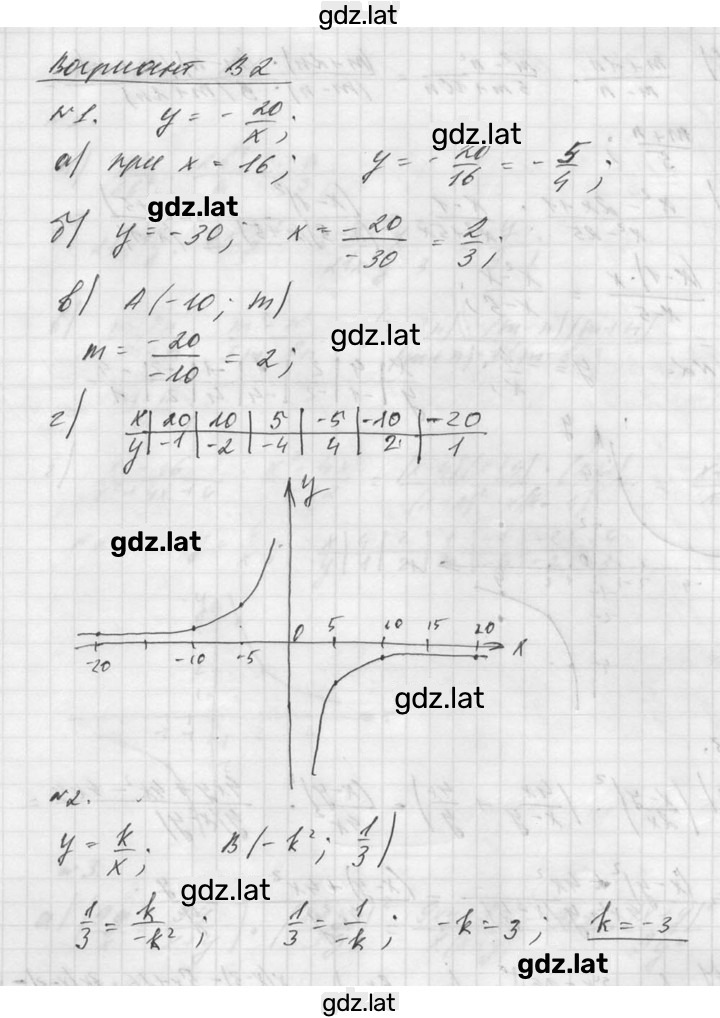 gdz.lat
Вариант В2
№1. y = - 20/x;
gdz.lat
а) при x = 16; y = - 20/16 = - 5/4;
gdz.lat
б) y = -30; x = -20/-30 = 2/3;
в) A(-10; m)
gdz.lat
m = -20/-10 = 2;
г) x | 20 | 10 | 5 | -5 | -10 | -20
y | -1 | -2 | -4 | 4 | 2 | 1
y
gdz.lat
0 5 10 15 20
-20 -10 -5 x
gdz.lat
№2.
y = k/x; B(-k²; 1/3)
gdz.lat
1/3 = k/-k²; 1/3 = 1/-k; -k = 3; k = -3
gdz.lat
gdz.lat